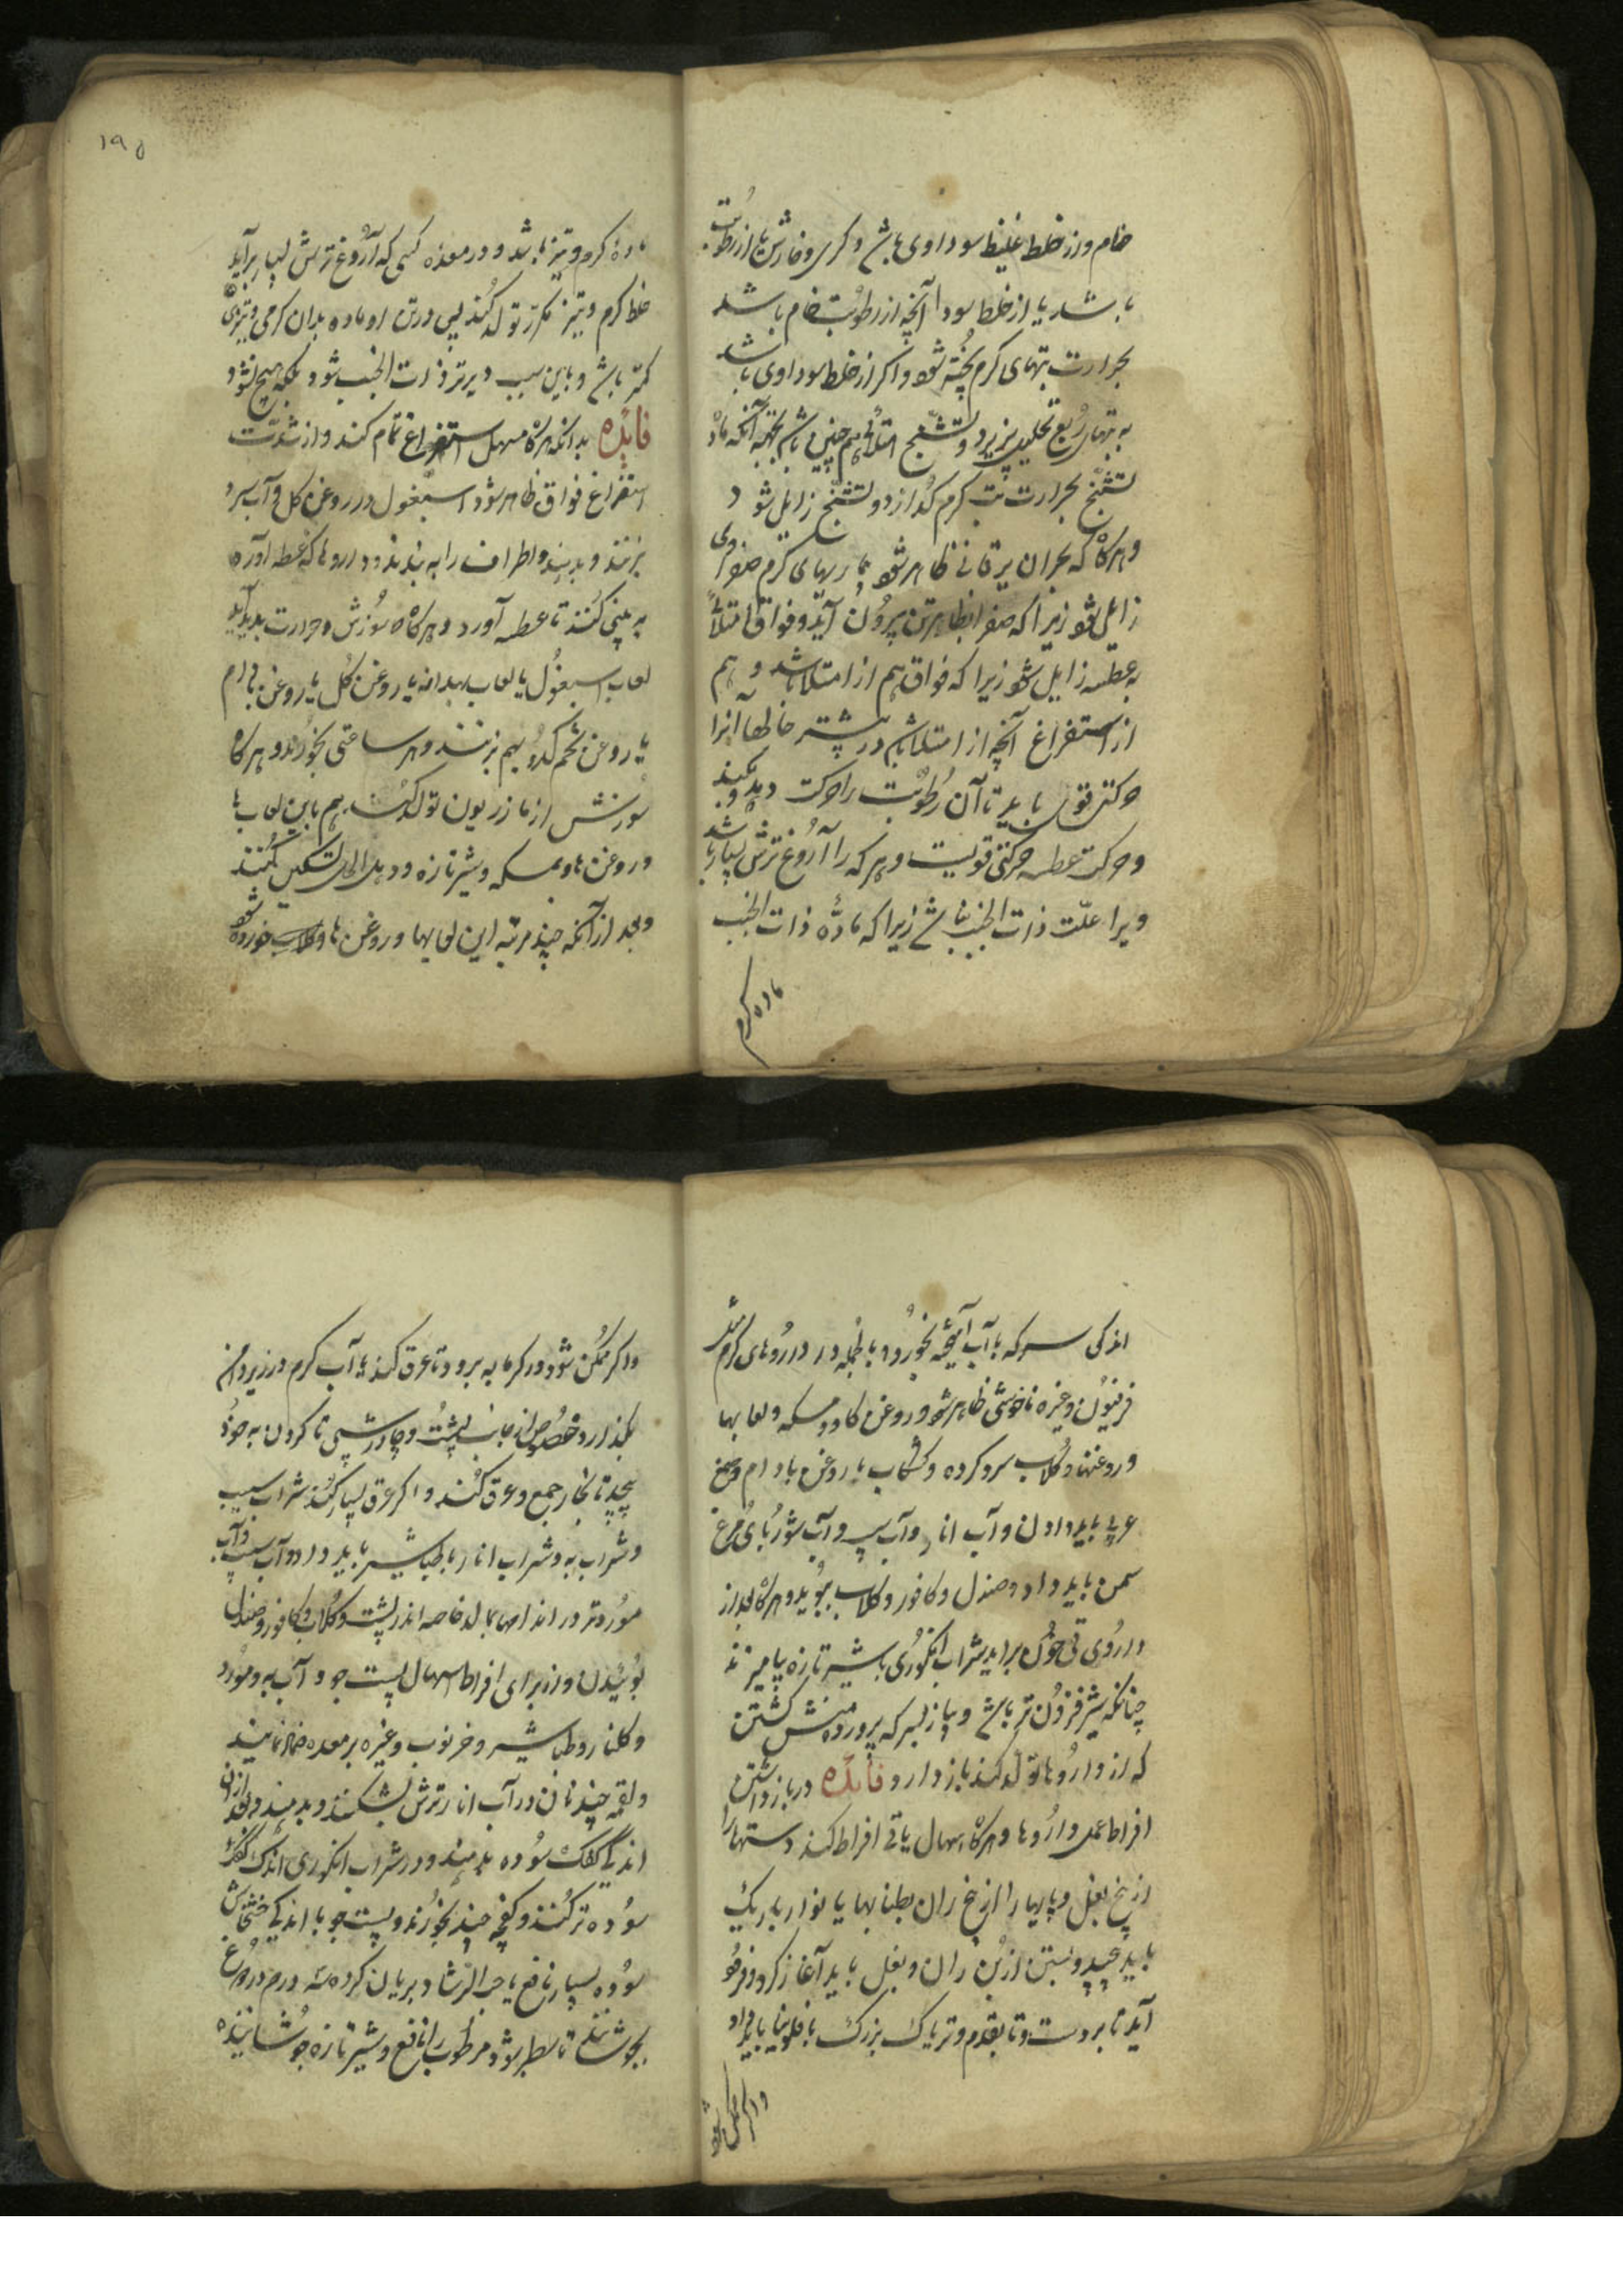 خام و از خلط غلیظ سوداوی باشد و کری و خارش یا از رطوبت
باشد یا از خلط سودا آنچه از رطوبت خام باشد
بحرارت تبهای کرم پخته شود و اکر از خلط سوداوی باشد
به تبهای ربع تحلیل پزیرد و تشنج امتلائی هم چنین باشد بجهته آنکه ماده
تشنج بحرارت تب کرم کدازد و تشنج زایل شود
و هرکاه که بحران یرقانی ظاهر شود بماریهای کرم صفراوی
زایل شود زیرا که صفرا بظاهر تن بیرون آید و فواق امتلائی
به عطسه زایل شود زیرا که فواق هم از امتلا باشد و هم
از استفراغ آنچه از امتلا باشد در بیشتر حالها آنرا
حرکتی قوی باید تا آن رطوبت را حرکت دهد و بکند
و حرکت عطسه حرکتی قویست و هر که را آروغ ترش بسیار باشد
ویرا علّت ذات الجنب نباشد زیرا که مادّه ذات الجنب
ماده کرم
۱۹۵
ماده کرم و تیز باشد و در معده کسی که آروغ ترش بسیار برآید
خلط کرم و تیز کمتر تولد کند پس در تن او ماده بدان کرمی و تیزی
کمتر باشد و باین سبب دیرتر ذات الجنب شود بلکه هیچ نشود
فائده بدانکه هرکاه مسهل استفراغ تمام کند و از شدّت
استفراغ فواق ظاهر شود اسبغول در روغن کل و آب سرد
بزنند و بدهند و اطراف را به بندند و داروها که عطسه آورد
به بینی کنند تا عطسه آورد و هرکاه سوزش و حرارت پدید آید
لعاب اسبغول یا لعاب بهدانه یا روغن کل یا روغن بادام
یا روغن تخم کدو بهم بزنند و هر ساعتی بخورند و هرکاه
سوزش از مازریون تولد کند هم باین لعاب ها
و روغن ها و مسکه و شیر تازه و دهن الحل تسکین کنند
و بعد از آنکه چند مرتبه این لعابها و روغن ها و کلاب خورده شود
اندکی سرکه با آب آمیخته بخورد و بالجمله در داروهای کرم مثل
فرفیون و غیره ناخوشی ظاهر شود روغن کاو و مسکه و لعابها
و روغنها و کلاب سرد کرده و کشکاب با روغن بادام و صمغ
عربی باید دادن و آب انار و آب سیب و آب شوربای مرغ
سمن باید داد و صندل و کافور و کلاب ببوید و هرکاه بعد از
داروی قی خون براید شراب انکوری با شیر تازه بیامیزند
چنانکه شیر فزون تر باشد و پیاز بسرکه پرورده منش کشتن
که از داروها تولد کند باز دارد فائده در باز داشتن
افراط عمل داروها و هرکاه اسهال یا قی افراط کند دستها را
از بیخ بغل و پایها را از بیخ ران بطنابها یا نوار باریک
باید پیچید و بستن از بن ران و بغل باید آغاز کرد و فرو
آید تا بر دست و تا بقدم و تریاک بزرک یا فلونیا باید داد
و اکر ممکن شود
و اکر ممکن شود در کرمابه برود تا عرق کند یا آب کرم در زیر دامن
بکذارد خصوص از جانب پشت و چادر شبی تا کردن به خود
پیچد تا بخار جمع و عرق کند و اکر عرق بسیار کند شراب سیب
و شراب به و شراب انار با طباشیر باید داد و آب سیب و آب
مورد تر در اندامها بمالد خاصه اندر پشت و کلاب و کافور و صندل
بوئیدن و از برای افراط اسهال پست جو و آب به و مورد
و کلنار و طباشیر و خرنوب و غیره بر معده ضماد نمایند
و لقمه چند نان در آب انار ترش بشکنند و بدهند و بعد از آن
اندکی کعک سوده بدهند و در شراب انکوری اندک کعک
سوده تر کنند و کفچه چند بخورند و پست جو با اندکی خشخاش
سوده بسیار نافع یا حب الرشاد بریان کرده سه درم در دوغ
بجوشانند تا سطبر شود مرطوب را نافع و شیر تازه جوشانیده